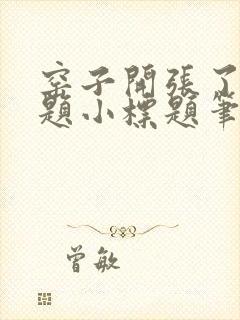 窑子開張了
題小標題筆
曾敏